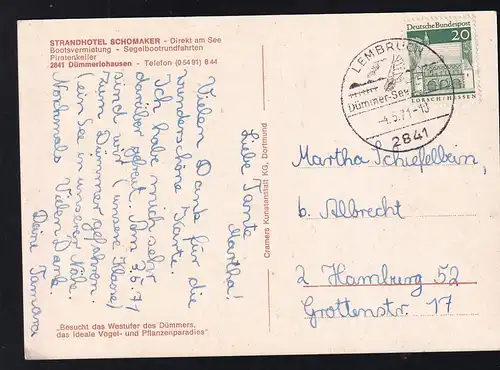 STRANDHOTEL SCHOMAKER - Direkt am See
Bootsvermietung - Segelbootrundfahrten
Piratenkeller
2841 Dümmerlohausen - Telefon (05491) 844
Liebe Tante
Martha!
Vielen Dank für die
wunderschöne Karte.
Ich habe mich sehr
darüber gefreut. Am 3.5.71
sind wir (unsere Klasse)
zum Dümmer gefahren.
(ein See in unserer Nähe.
Nochmals Vielen Dank.
Deine Tamara
„Besucht das Westufer des Dümmers,
das ideale Vogel- und Pflanzenparadies"
Cramers Kunstanstalt KG, Dortmund
LEMBRUCH
Dümmer-See
-4.5.71-10
2841
Deutsche Bundespost
20
LORSCH/HESSEN
Martha Schiefelbein,
b. Albrecht
2 Hamburg 52
Grottenstr. 17